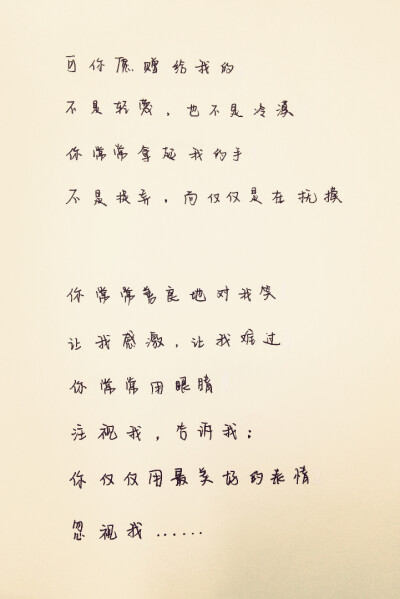 可你愿赠给我的
不是轻蔑，也不是冷漠
你常常拿起我的手
不是投弃，而仅仅是在抚摸
你常常善良地对我笑
让我感激，让我难过
你常常用眼睛
注视我，告诉我：
你仅仅用最美好的表情
忽视我......